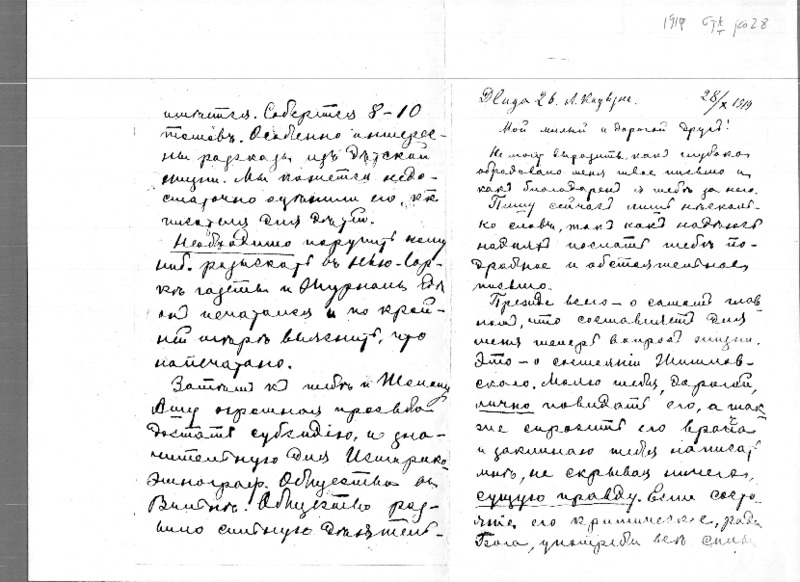 1919
28
имѣется. Соберется 8–10
томовъ. Особенно интерес-
ны разсказы изъ дѣтской
жизни. Мы кажется недо-
статочно оцѣнили его, какъ
писателя для дѣтей.
Необходимо поручить кому
ниб. разыскать въ Нью-Іор-
кѣ газеты и журналы гдѣ
онъ печатался и по край-
ней мѣрѣ выяснить, что
напечатано.
Затѣмъ къ тебѣ и
огромная просьба
достать субсидію, и зна-
чительную для Историко
Этнограф. Общества въ
Вильнѣ. Общество раз-
вило сильную дѣятель-
Двида 26. 28/X 1919
Мой милый и дорогой другъ!
Не могу выразить, какъ глубоко
обрадовало меня твое письмо и
какъ благодаренъ я тебѣ за него.
Пишу сейчасъ лишь нѣсколь-
ко словъ, такъ какъ надѣюсь
на дняхъ послать тебѣ по-
дробное и обстоятельное
письмо.
Прежде всего – о самомъ глав-
номъ, что составляетъ для
меня теперь вопросъ жизни.
Это – о состояніи Житлов-
скаго. Молю тебя, дорогой,
лично повидать его, а так-
же спросить его врача
и заклинаю тебя написать
мнѣ, не скрывая ничего,
сущую правду. Если состо-
яніе его критическое, ради
Бога, употреби всѣ силы